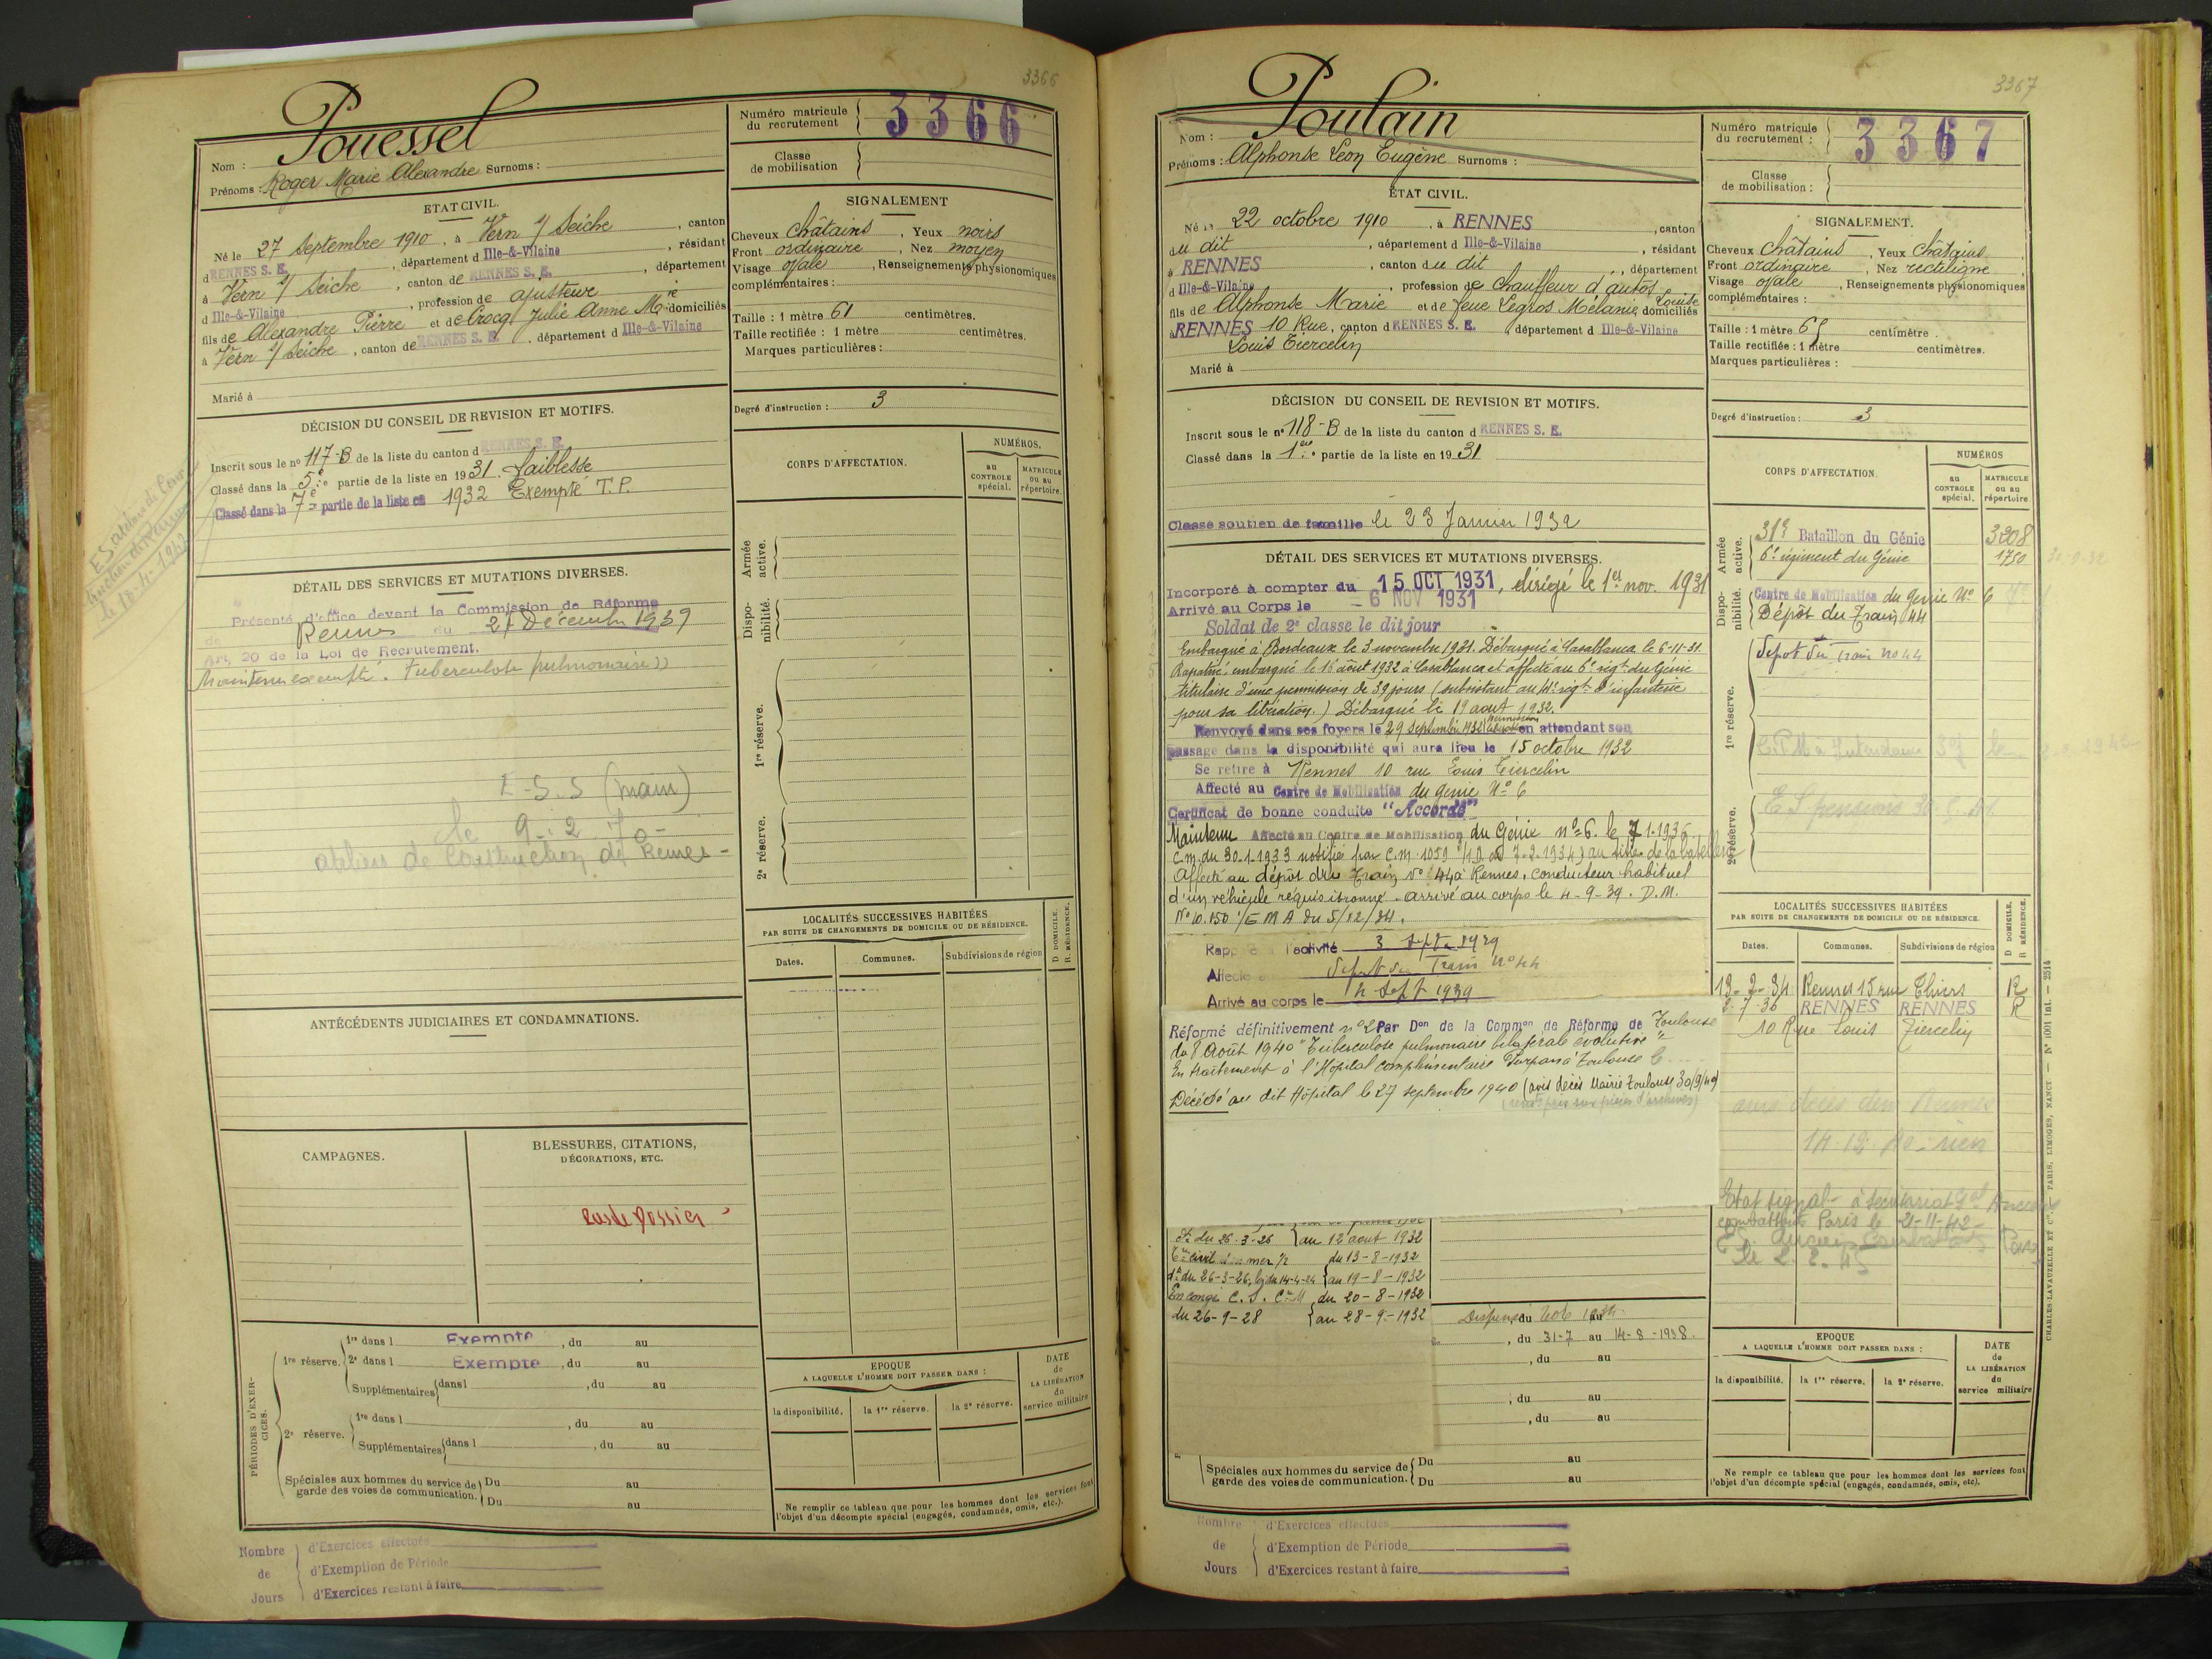 3366
Pouessel
Nom :
Prénoms : Roger Marie Alexandre Surnoms :
Numéro matricule
du recrutement
3366
Classe
de mobilisation
ETAT CIVIL.
Né le 27 Septembre 1910, à Vern s/ Seiche, canton
d RENNES S. E., département d Ille-&-Vilaine, résidant
à Vern s/ Seiche, canton de RENNES S. E., département
d Ille-&-Vilaine, profession de ajusteur
fils de Alexandre Pierre et de Crocq Julie Anne Mie domiciliés
à Vern s/ Seiche, canton de RENNES S. E., département d Ille-&-Vilaine
Marié à
SIGNALEMENT
Cheveux châtains, Yeux noirs
Front ordinaire, Nez moyen
Visage ovale, Renseignements physionomiques
complémentaires :
Taille : 1 mètre 61 centimètres.
Taille rectifiée : 1 mètre centimètres.
Marques particulières :
Degré d'instruction : 3
DÉCISION DU CONSEIL DE REVISION ET MOTIFS.
Inscrit sous le no 117-B de la liste du canton d RENNES S. E.
Classé dans la 5e partie de la liste en 1931. faiblesse
Classé dans la 7e partie de la liste en 1932 Exempté T.P.
le 18-4-1942
DÉTAIL DES SERVICES ET MUTATIONS DIVERSES.
Présenté d'office devant la Commission de Réforme
de Rennes du 21 Décembre 1939
Art. 20 de la Loi de Recrutement.
Maintenu exempté. Tuberculose pulmonaire
E-S.S (main)
le 9-2 70-
ateliers de Construction de Rennes-
CORPS D'AFFECTATION.
NUMÉROS.
au
CONTROLE
spécial.
MATRICULE
ou au
répertoire.
Armée
active.
Dispo-
nibilité.
1re réserve.
2e réserve.
LOCALITÉS SUCCESSIVES HABITÉES
PAR SUITE DE CHANGEMENTS DE DOMICILE OU DE RÉSIDENCE.
D DOMICILE.
R RÉSIDENCE.
Dates.
Communes.
Subdivisions de région
ANTÉCÉDENTS JUDICIAIRES ET CONDAMNATIONS.
CAMPAGNES.
BLESSURES, CITATIONS,
DÉCORATIONS, ETC.
PÉRIODES D'EXER-
CICES.
1re réserve. 1re dans l Exempté, du au
2e dans l Exempté, du au
Supplémentaires dans l, du au
2e réserve. 1re dans l, du au
Supplémentaires dans l, du au
Spéciales aux hommes du service de Du au
garde des voies de communication. Du au
EPOQUE
A LAQUELLE L'HOMME DOIT PASSER DANS :
la disponibilité.
la 1re réserve.
la 2e réserve.
DATE
de
LA LIBÉRATION
du
service militaire
Ne remplir ce tableau que pour les hommes dont les services font
l'objet d'un décompte spécial (engagés, condamnés, omis, etc.).
Nombre d'Exercices effectués
de d'Exemption de Période
Jours d'Exercices restant à faire
3367
Poulain
Nom :
Prénoms : Alphonse Léon Eugène Surnoms :
Numéro matricule
du recrutement :
3367
Classe
de mobilisation :
ÉTAT CIVIL.
Né le 22 octobre 1910, à RENNES, canton
du dit, département d Ille-&-Vilaine, résidant
à RENNES, canton du dit, département
d Ille-&-Vilaine, profession de chauffeur d'autos
fils de Alphonse Marie et de feue Legros Mélanie Louise domiciliés
à RENNES 10 Rue, canton d RENNES S. E. département d Ille-&-Vilaine
Louis Tiercelin
Marié à
SIGNALEMENT.
Cheveux châtains, Yeux châtains
Front ordinaire, Nez rectiligne
Visage ovale, Renseignements physionomiques
complémentaires :
Taille : 1 mètre 65 centimètre.
Taille rectifiée : 1 mètre centimètres.
Marques particulières :
Degré d'instruction : 3
DÉCISION DU CONSEIL DE REVISION ET MOTIFS.
Inscrit sous le no 118-B de la liste du canton d RENNES S. E.
Classé dans la 1ère partie de la liste en 1931
Classé soutien de famille le 23 Janvier 1932
DÉTAIL DES SERVICES ET MUTATIONS DIVERSES.
Incorporé à compter du 15 OCT 1931, dirigé le 1er nov. 1931
Arrivé au Corps le - 6 NOV 1931
Soldat de 2e classe le dit jour
Embarqué à Bordeaux le 3 novembre 1931. Débarqué à Casablanca le 6-11-31.
Rapatrié, embarqué le 16 août 1932 à Casablanca et affecté au 6e régt du Génie
titulaire d'une permission de 39 jours (subsistant au 41e régt d'infanterie
pour sa libération.) Débarqué le 19 août 1932.
Renvoyé dans ses foyers le 29 septembre 1932 en attendant son
passage dans la disponibilité qui aura lieu le 15 octobre 1932
Se retire à Rennes 10 rue Louis Tiercelin
Affecté au Centre de Mobilisation du Génie No 6
Certificat de bonne conduite "Accordé"
Maintenu Affecté au Centre de Mobilisation du Génie no 6. le 7.1.1936.
Affecté au dépôt du Train No 44 à Rennes, conducteur habituel
d'un véhicule réquisitionné. arrivé au corps le 4-9-39. D.M.
No 10.150 /EMA du 5/12/34.
Rappelé à l'activité 3 sept 1939
Affecté Dépôt du Train no 44
Arrivé au corps le 4 sept 1939
Réformé définitivement no 2 Par Don de la Common de Réforme de Toulouse
du 8 Août 1940 "Tuberculose pulmonaire bilatérale évolutive"
En traitement à l'Hôpital complémentaire Purpan à Toulouse
Décédé au dit Hôpital le 27 septembre 1940 (avis décès Mairie Toulouse 30/9/40)
du 26-3-26 au 12 août 1932
du 13-8-1932
du 26-3-26, loi du 14-4-24 au 19-8-1932
En congé C. S. du 20-8-1932
du 26-9-28 au 28-9-1932
Dispensé du au
, du 31-7 au 14-8-1938.
, du au
, du au
, du au
Spéciales aux hommes du service de Du au
garde des voies de communication. Du au
CORPS D'AFFECTATION.
NUMÉROS
au
CONTROLE
spécial.
MATRICULE
ou au
répertoire.
Armée
active.
31e Bataillon du Génie 3208
6e régiment du Génie 1750
Dispo-
nibilité.
Centre de Mobilisation du Génie No 6
Dépôt du Train 44
1re réserve.
Dépôt du Train no 44
2e réserve.
LOCALITÉS SUCCESSIVES HABITÉES
PAR SUITE DE CHANGEMENTS DE DOMICILE OU DE RÉSIDENCE.
D DOMICILE.
R RÉSIDENCE.
Dates.
Communes.
Subdivisions de région
13-2-34 Rennes 15 rue Thiers R
2-7-36 RENNES RENNES R
10 Rue Louis Tiercelin
Etat signal- à Secrétariat Gal Anciens
combattants Paris le 21-11-42-
EPOQUE
A LAQUELLE L'HOMME DOIT PASSER DANS :
la disponibilité.
la 1re réserve.
la 2e réserve.
DATE
de
LA LIBÉRATION
du
service militaire
Ne remplr ce tableau que pour les hommes dont les services font
l'objet d'un décompte spécial (engagés, condamnés, omis, etc).
CHARLES-LAVAUZELLE ET Cie. PARIS, LIMOGES, NANCY. — No 1001 bis. — 2514
Nombre d'Exercices effectués
de d'Exemption de Période
Jours d'Exercices restant à faire